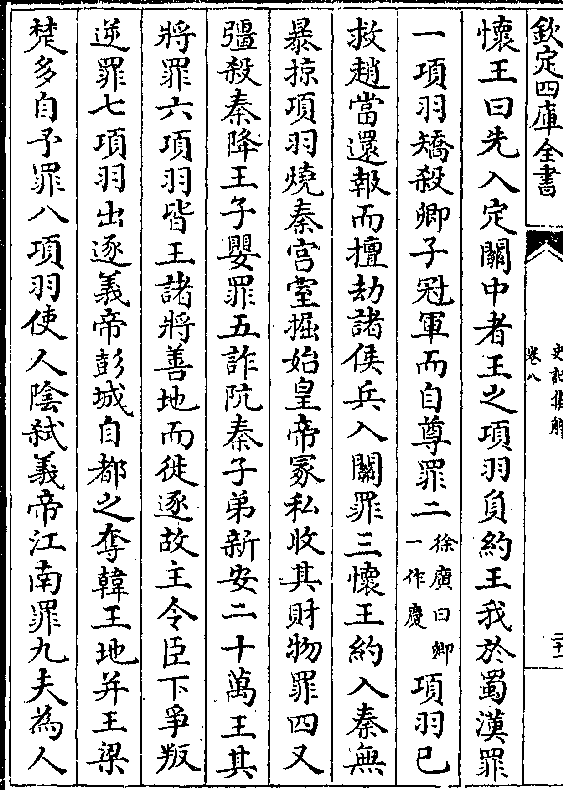 欽定四庫全書
史記集解
卷八
懷王曰先入定關中者王之項羽負約王我於蜀漢罪
一項羽矯殺卿子冠軍而自尊罪二徐廣曰卿一作慶項羽已
救趙當還報而擅劫諸侯兵入關罪三懷王約入秦無
暴掠項羽燒秦宮室掘始皇帝冢私收其財物罪四又
彊殺秦降王子嬰罪五詐阬秦子弟新安二十萬王其
將罪六項羽皆王諸將善地而徙逐故主令臣下爭叛
逆罪七項羽出逐義帝彭城自都之奪韓王地并王梁
楚多自予罪八項羽使人陰弑義帝江南罪九夫為人